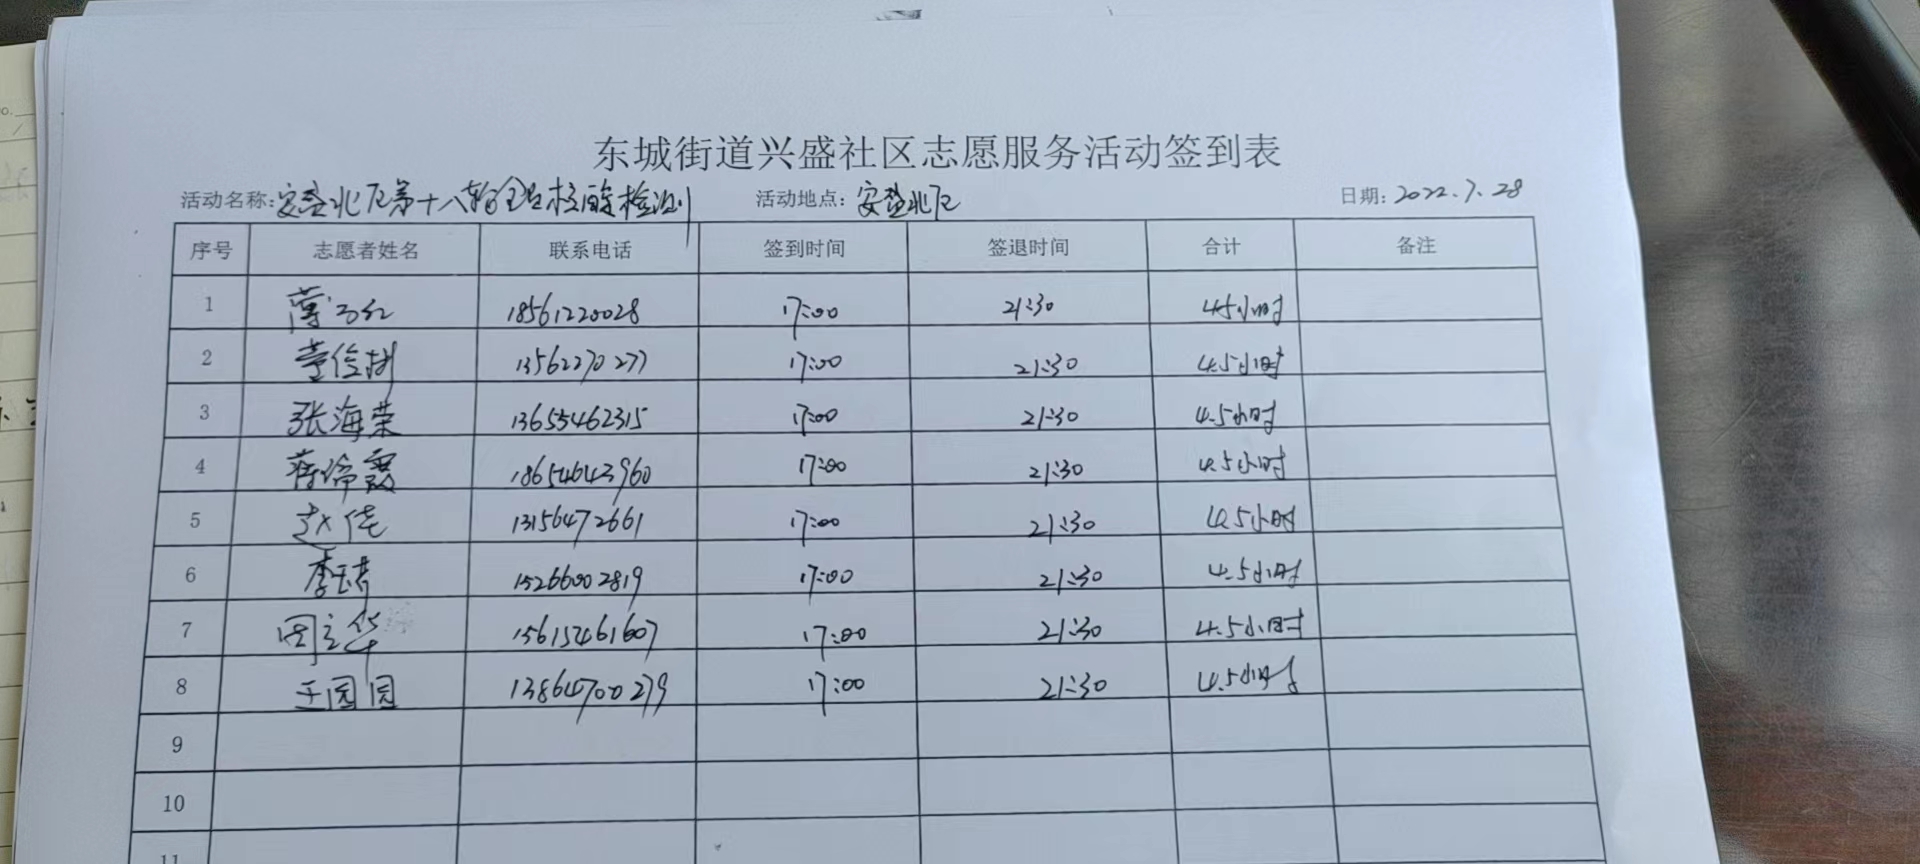 东城街道兴盛社区志愿服务活动签到表
活动名称:安盛北区第十八轮全员核酸检测 活动地点:安盛北区 日期:2022.7.28
序号 志愿者姓名 联系电话 签到时间 签退时间 合计 备注
1 18561220028 17:00 21:30 4.5小时
2 董俊树 13562270277 17:00 21:30 4.5小时
3 张海荣 13655462315 17:00 21:30 4.5小时
4 18654643960 17:00 21:30 4.5小时
5 赵倩 13156472661 17:00 21:30 4.5小时
6 李 15266002819 17:00 21:30 4.5小时
7 周立华 15615461607 17:00 21:30 4.5小时
8 王园园 13864700279 17:00 21:30 4.5小时
9
10
11